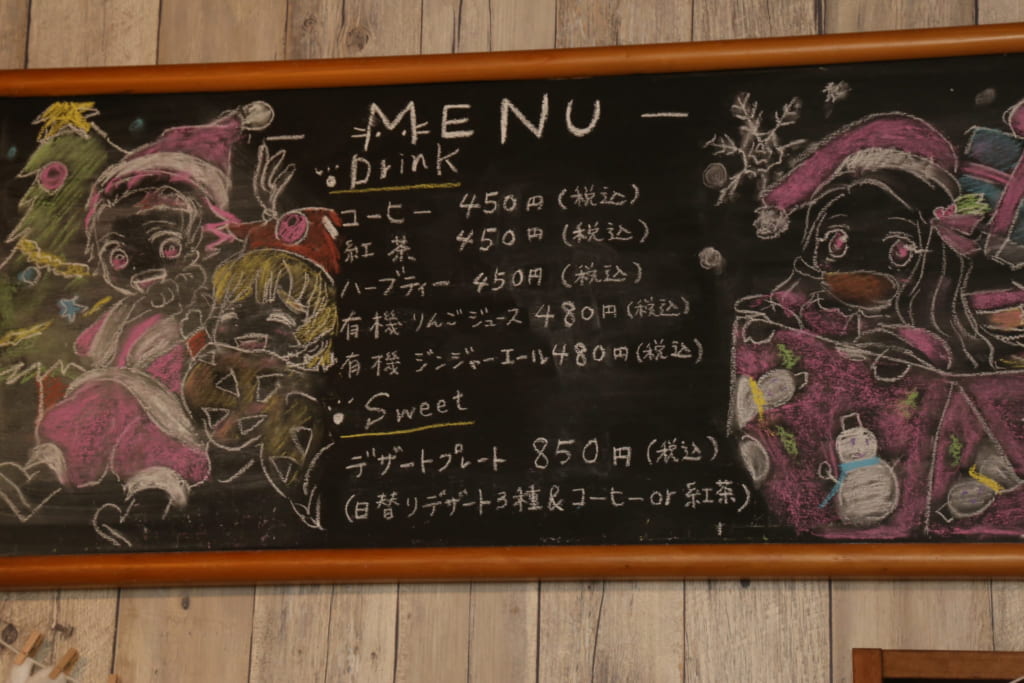 — MENU —
Drink
コーヒー 450円(税込)
紅茶 450円(税込)
ハーブティー 450円(税込)
有機りんごジュース 480円(税込)
有機ジンジャーエール480円(税込)
Sweet
デザートプレート 850円(税込)
(日替りデザート3種&コーヒーor紅茶)